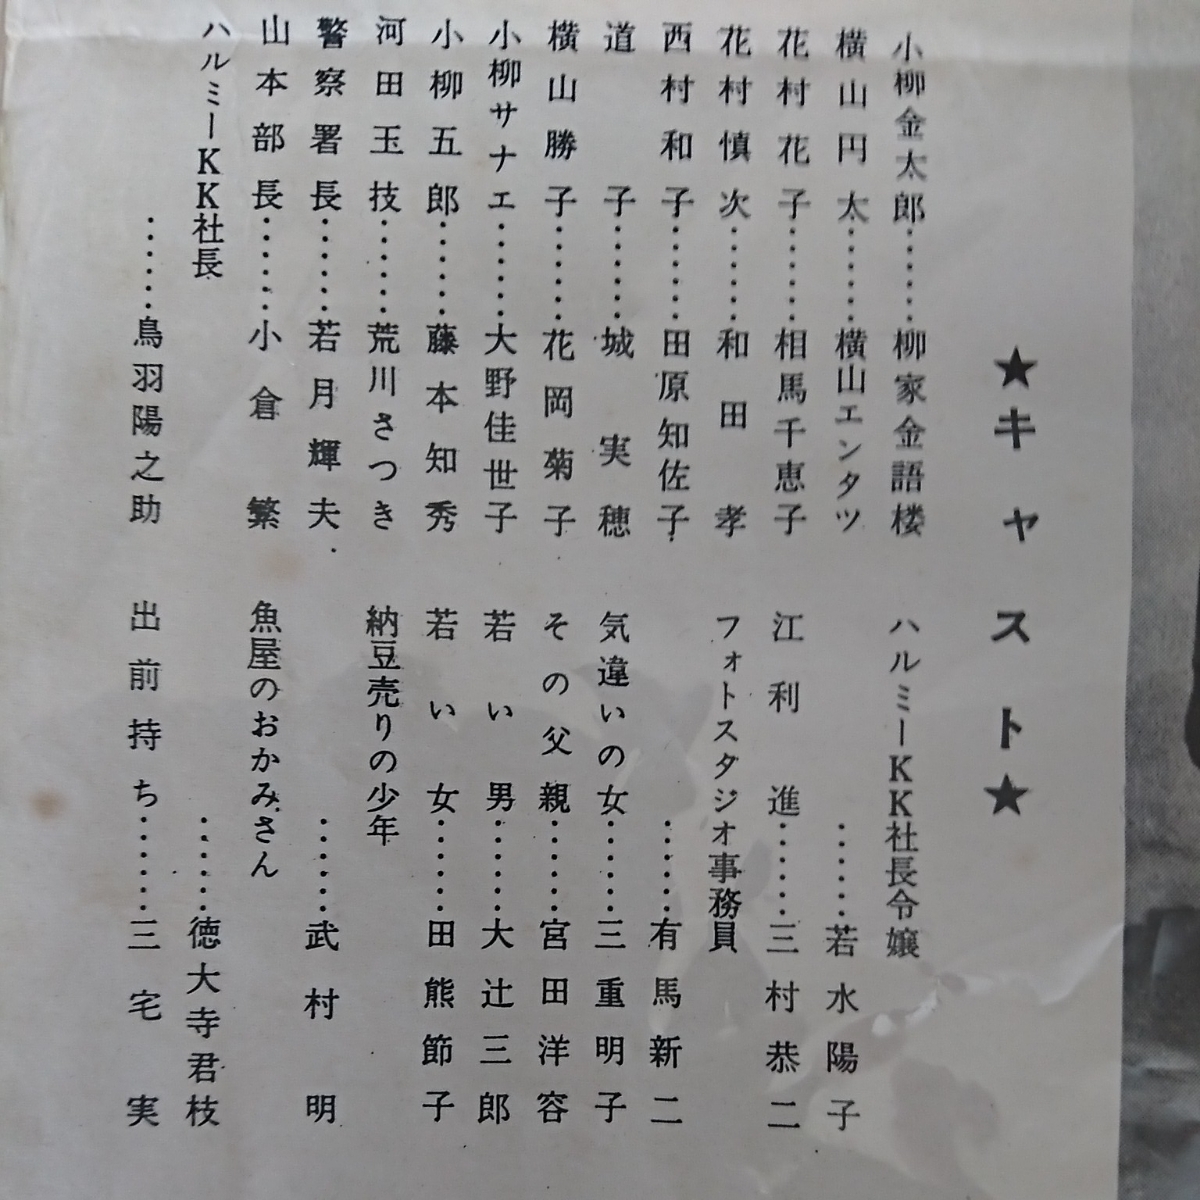 ★キャスト★
小柳金太郎……柳家金語楼
横山円太……横山エンタツ
花村花子……相馬千恵子
花村慎次……和田孝
西村和子……田原知佐子
道子……城実穂
横山勝子……花岡菊子
小柳サナエ……大野佳世子
小柳五郎……藤本知秀
河田玉技……荒川さつき
警察署長……若月輝夫
山本部長……小倉繁
ハルミーKK社長
……鳥羽陽之助
ハルミーKK社長令嬢
……若水陽子
江利進……三村恭二
フォトスタジオ事務員
……有馬新二
気違いの女……三重明子
その父親……宮田洋容
若い男……大辻三郎
若い女……田熊節子
納豆売りの少年
……武村明
魚屋のおかみさん
……徳大寺君枝
出前持ち……三宅実